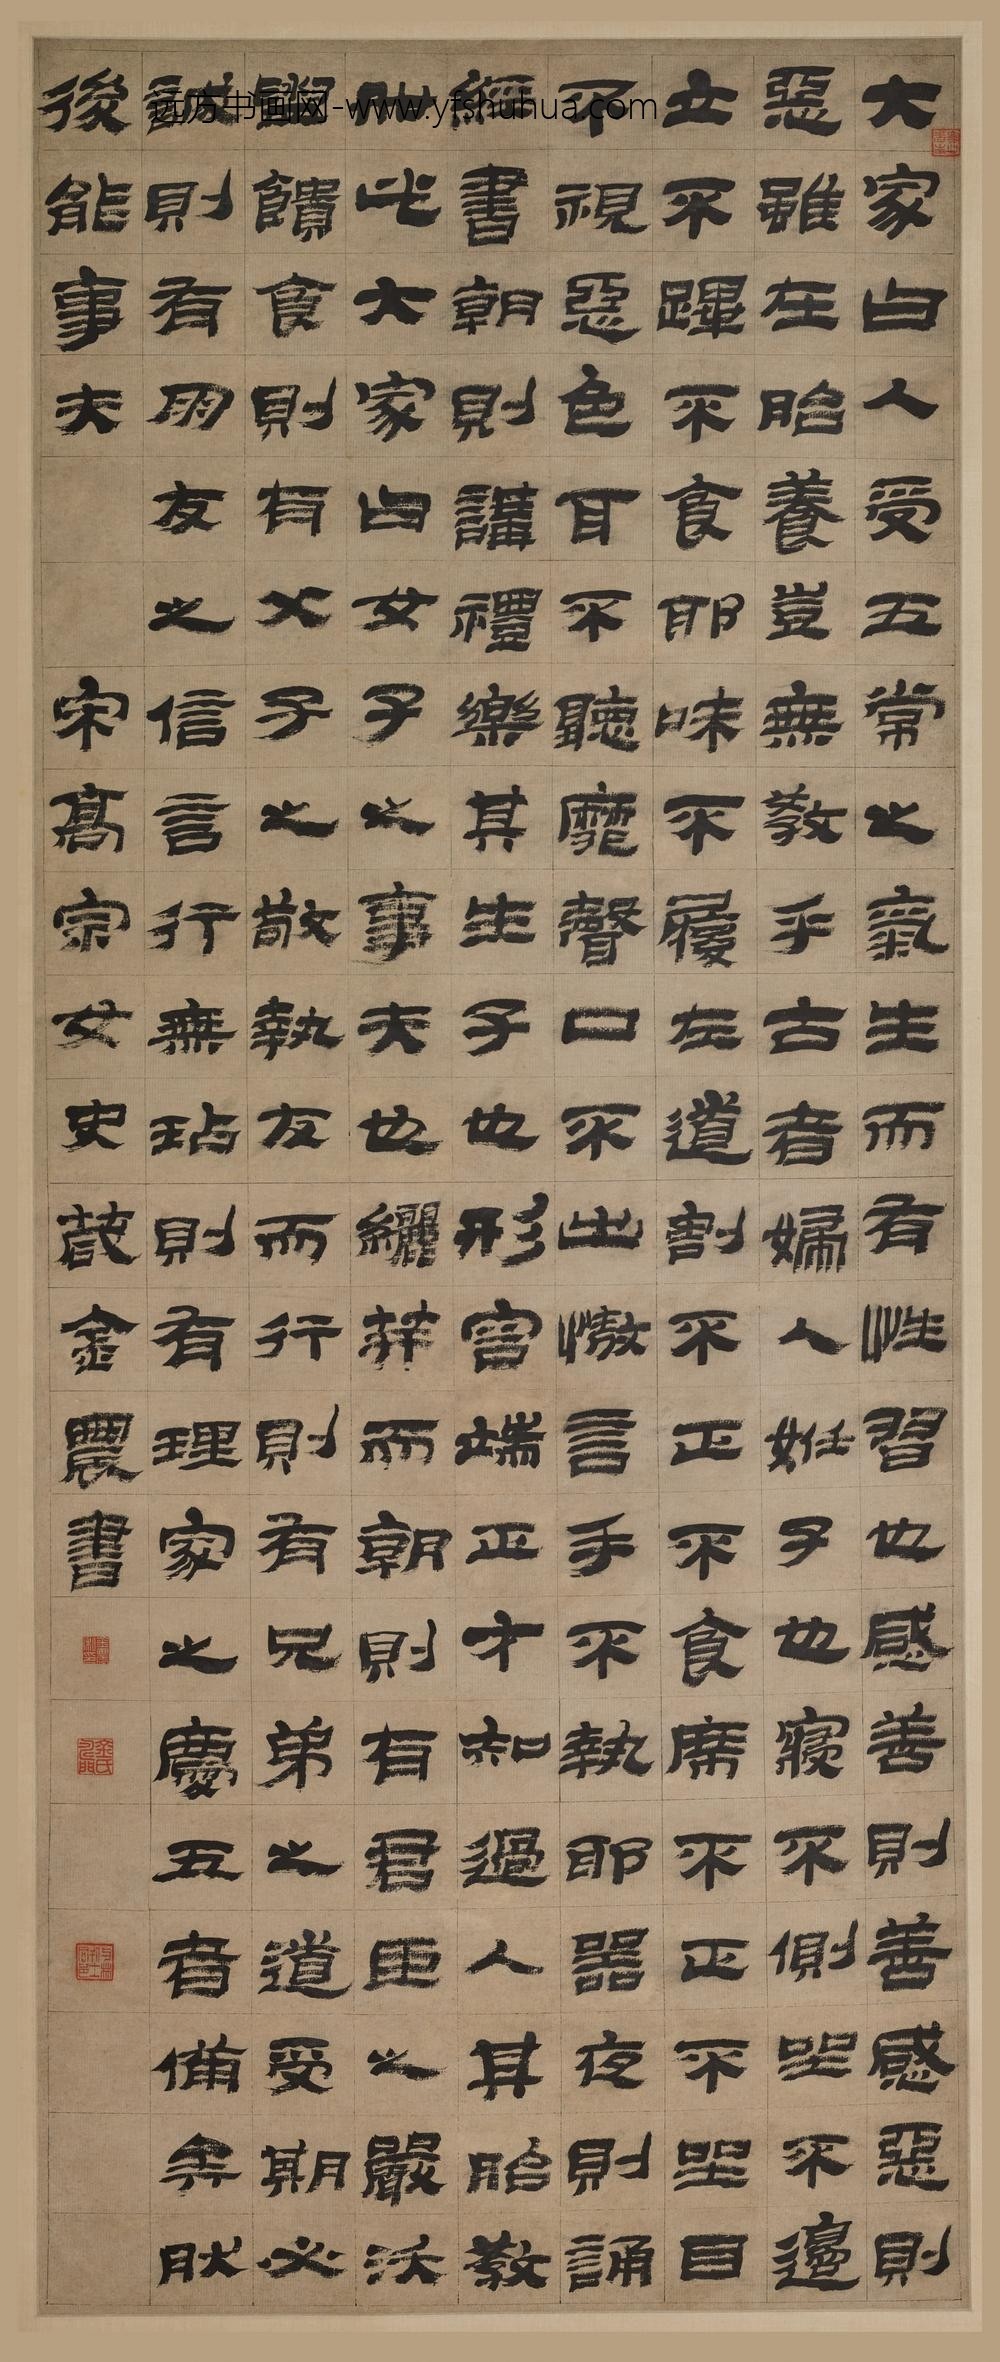 大家曰人受五常之氣生而有性習也感善則善感惡則
惡雖在胎養豈無教乎古者婦人姙子也寢不側坐不邊
立不蹕不食耶味不履左道割不正不食席不正不坐目
不視惡色耳不聽靡聲口不出慠言手不執耶器夜則誦
經書朝則講禮樂其生子也形容端正才知過人其胎教
如此大家曰女子之事夫也纚笄而朝則有君臣之嚴沃
盥饋食則有父子之敬執友而行則有兄弟之道受期必
誠則有朋友之信言行無玷則有理家之慶五者備矣然
後能事夫
宋高宗女史箴金農書
远方书画网-www.yfshuhua.com